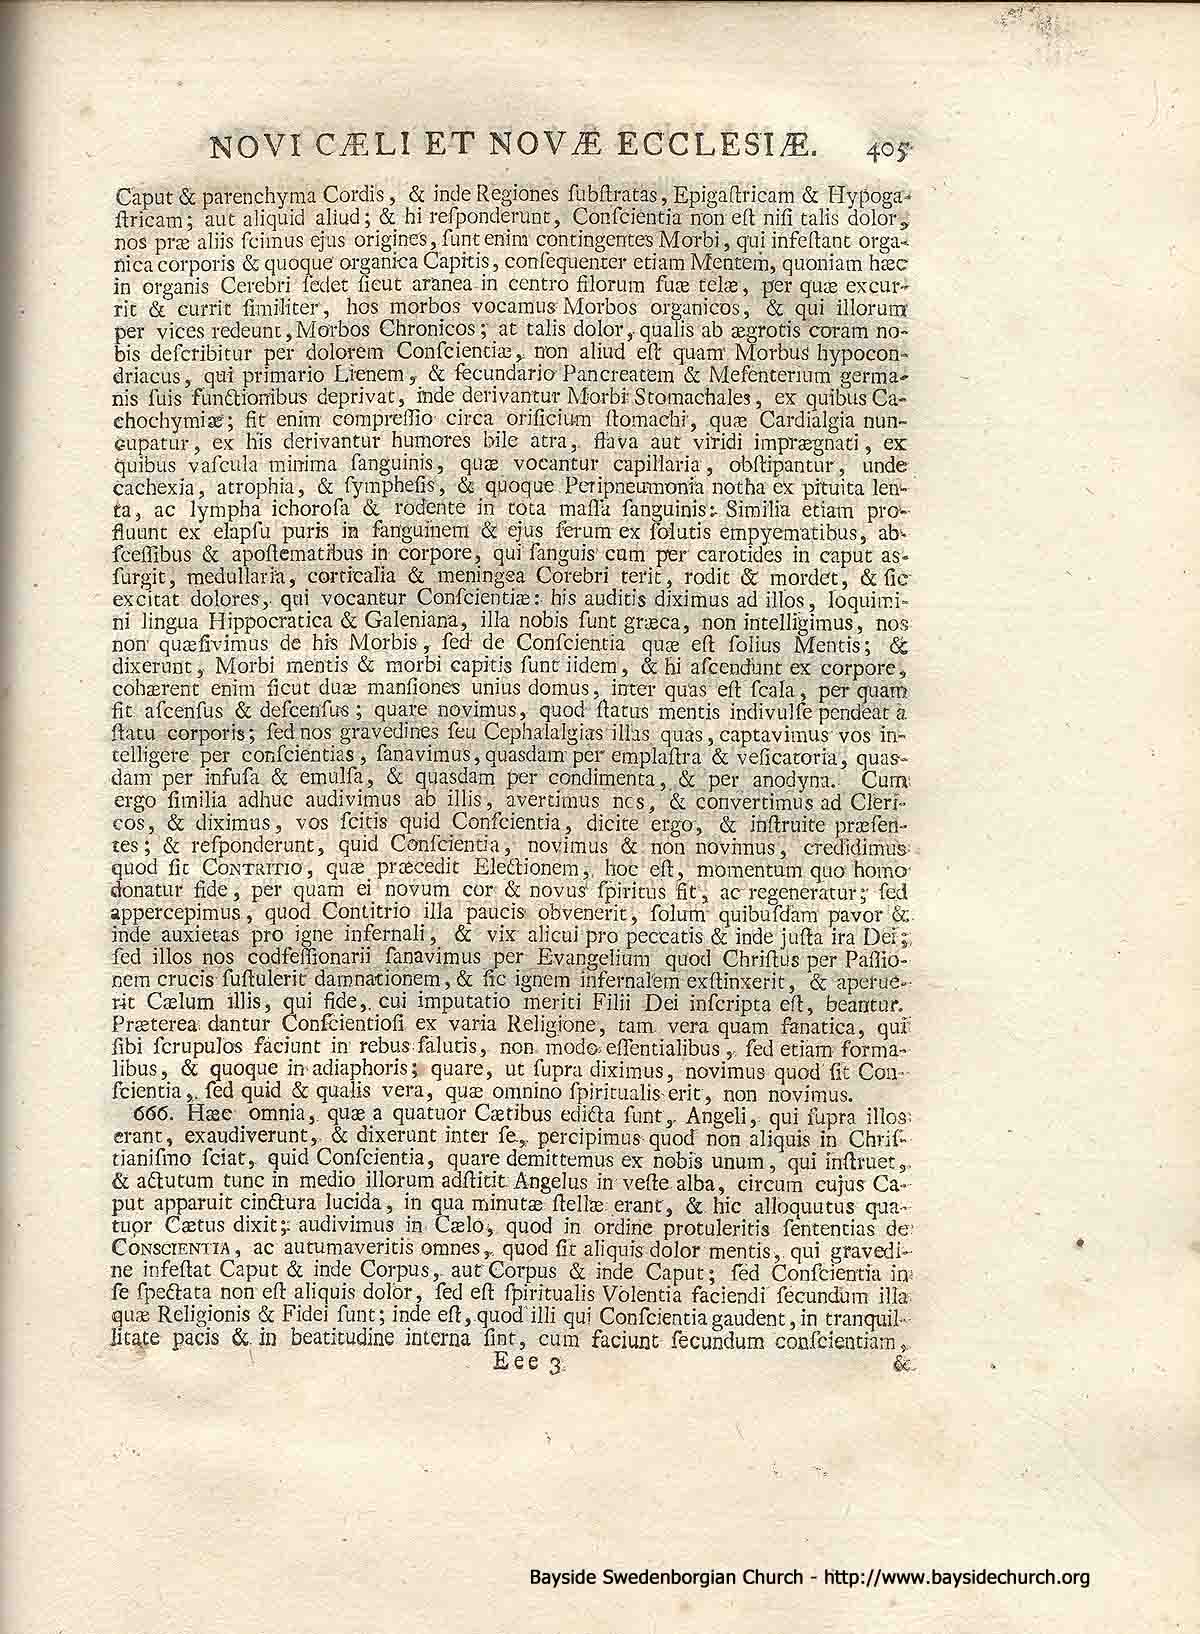 NOVI CÆLI ET NOVÆ ECCLESIÆ. 405
Caput & parenchyma Cordis, & inde Regiones ſubſtratas, Epigaſtricam & Hypoga-
ſtricam; aut aliquid aliud; & hi reſponderunt, Conſcientia non eſt niſi talis dolor,
nos præ aliis ſcimus ejus origines, ſunt enim contingentes Morbi, qui infeſtant orga-
nica corporis & quoque organica Capitis, conſequenter etiam Mentem, quoniam hæc
in organis Cerebri ſedet ſicut aranea in centro filorum ſuæ telæ, per quæ excur-
rit & currit ſimiliter, hos morbos vocamus Morbos organicos, & qui illorum
per vices redeunt, Morbos Chronicos; at talis dolor, qualis ab ægrotis coram no-
bis deſcribitur per dolorem Conſcientiæ, non aliud eſt quam Morbus hypocon-
driacus, qui primario Lienem, & ſecundario Pancreatem & Meſenterium germa-
nis ſuis functionibus deprivat, inde derivantur Morbi Stomachales, ex quibus Ca-
chochymiæ; fit enim compreſſio circa orificium ſtomachi, quæ Cardialgia nun-
cupatur, ex his derivantur humores bile atra, flava aut viridi imprægnati, ex
quibus vaſcula minima ſanguinis, quæ vocantur capillaria, obſtipantur, unde
cachexia, atrophia, & ſympheſis, & quoque Peripneumonia notha ex pituita len-
ta, ac lympha ichoroſa & rodente in tota maſſa ſanguinis: Similia etiam pro-
fluunt ex elapſu puris in ſanguinem & ejus ſerum ex ſolutis empyematibus, ab-
ſceſſibus & apoſtematibus in corpore, qui ſanguis cum per carotides in caput as-
ſurgit, medullaria, corticalia & meningea Corebri terit, rodit & mordet, & ſic
excitat dolores, qui vocantur Conſcientiæ: his auditis diximus ad illos, loquimi-
ni lingua Hippocratica & Galeniana, illa nobis ſunt græca, non intelligimus, nos
non quæſivimus de his Morbis, ſed de Conſcientia quæ eſt ſolius Mentis; &
dixerunt, Morbi mentis & morbi capitis ſunt iidem, & hi aſcendunt ex corpore,
cohærent enim ſicut duæ manſiones unius domus, inter quas eſt ſcala, per quam
fit aſcenſus & deſcenſus; quare novimus, quod ſtatus mentis indivulſe pendeat a
ſtatu corporis; ſed nos gravedines ſeu Cephalalgias illas quas, captavimus vos in-
telligere per conſcientias, ſanavimus, quasdam per emplaſtra & veſicatoria, quas-
dam per infuſa & emulſa, & quasdam per condimenta, & per anodyna. Cum
ergo ſimilia adhuc audivimus ab illis, avertimus nos, & convertimus ad Cleri-
cos, & diximus, vos ſcitis quid Conſcientia, dicite ergo, & inſtruite præſen-
tes; & reſponderunt, quid Conſcientia, novimus & non novimus, credidimus
quod ſit CONTRITIO, quæ præcedit Electionem, hoc eſt, momentum quo homo
donatur fide, per quam ei novum cor & novus ſpiritus fit, ac regeneratur; ſed
appercepimus, quod Contitrio illa paucis obvenerit, ſolum quibuſdam pavor &
inde auxietas pro igne infernali, & vix alicui pro peccatis & inde juſta ira Dei;
ſed illos nos codfeſſionarii ſanavimus per Evangelium quod Chriſtus per Paſſio-
nem crucis ſuſtulerit damnationem, & ſic ignem infernalem exſtinxerit, & aperue-
rit Cælum illis, qui fide, cui imputatio meriti Filii Dei inſcripta eſt, beantur.
Præterea dantur Conſcientioſi ex varia Religione, tam vera quam fanatica, qui
ſibi ſcrupulos faciunt in rebus ſalutis, non modo eſſentialibus, ſed etiam forma-
libus, & quoque in adiaphoris; quare, ut ſupra diximus, novimus quod ſit Con-
ſcientia, ſed quid & qualis vera, quæ omnino ſpiritualis erit, non novimus.
666. Hæe omnia, quæ a quatuor Cætibus edicta ſunt, Angeli, qui ſupra illos
erant, exaudiverunt, & dixerunt inter ſe, percipimus quod non aliquis in Chriſ-
tianiſmo ſciat, quid Conſcientia, quare demittemus ex nobis unum, qui inſtruet,
& actutum tunc in medio illorum adſtitit Angelus in veſte alba, circum cujus Ca-
put apparuit cinctura lucida, in qua minutæ ſtellæ erant, & hic alloquutus qua-
tuor Cætus dixit; audivimus in Cælo, quod in ordine protuleritis ſententias de
CONSCIENTIA, ac autumaveritis omnes, quod ſit aliquis dolor mentis, qui gravedi-
ne infeſtat Caput & inde Corpus, aut Corpus & inde Caput; ſed Conſcientia in
ſe ſpectata non eſt aliquis dolor, ſed eſt ſpiritualis Volentia faciendi ſecundum illa
quæ Religionis & Fidei ſunt; inde eſt, quod illi qui Conſcientia gaudent, in tranquil-
litate pacis & in beatitudine interna ſint, cum faciunt ſecundum conſcientiam,
Eee 3 &
Bayside Swedenborgian Church - http://www.baysidechurch.org